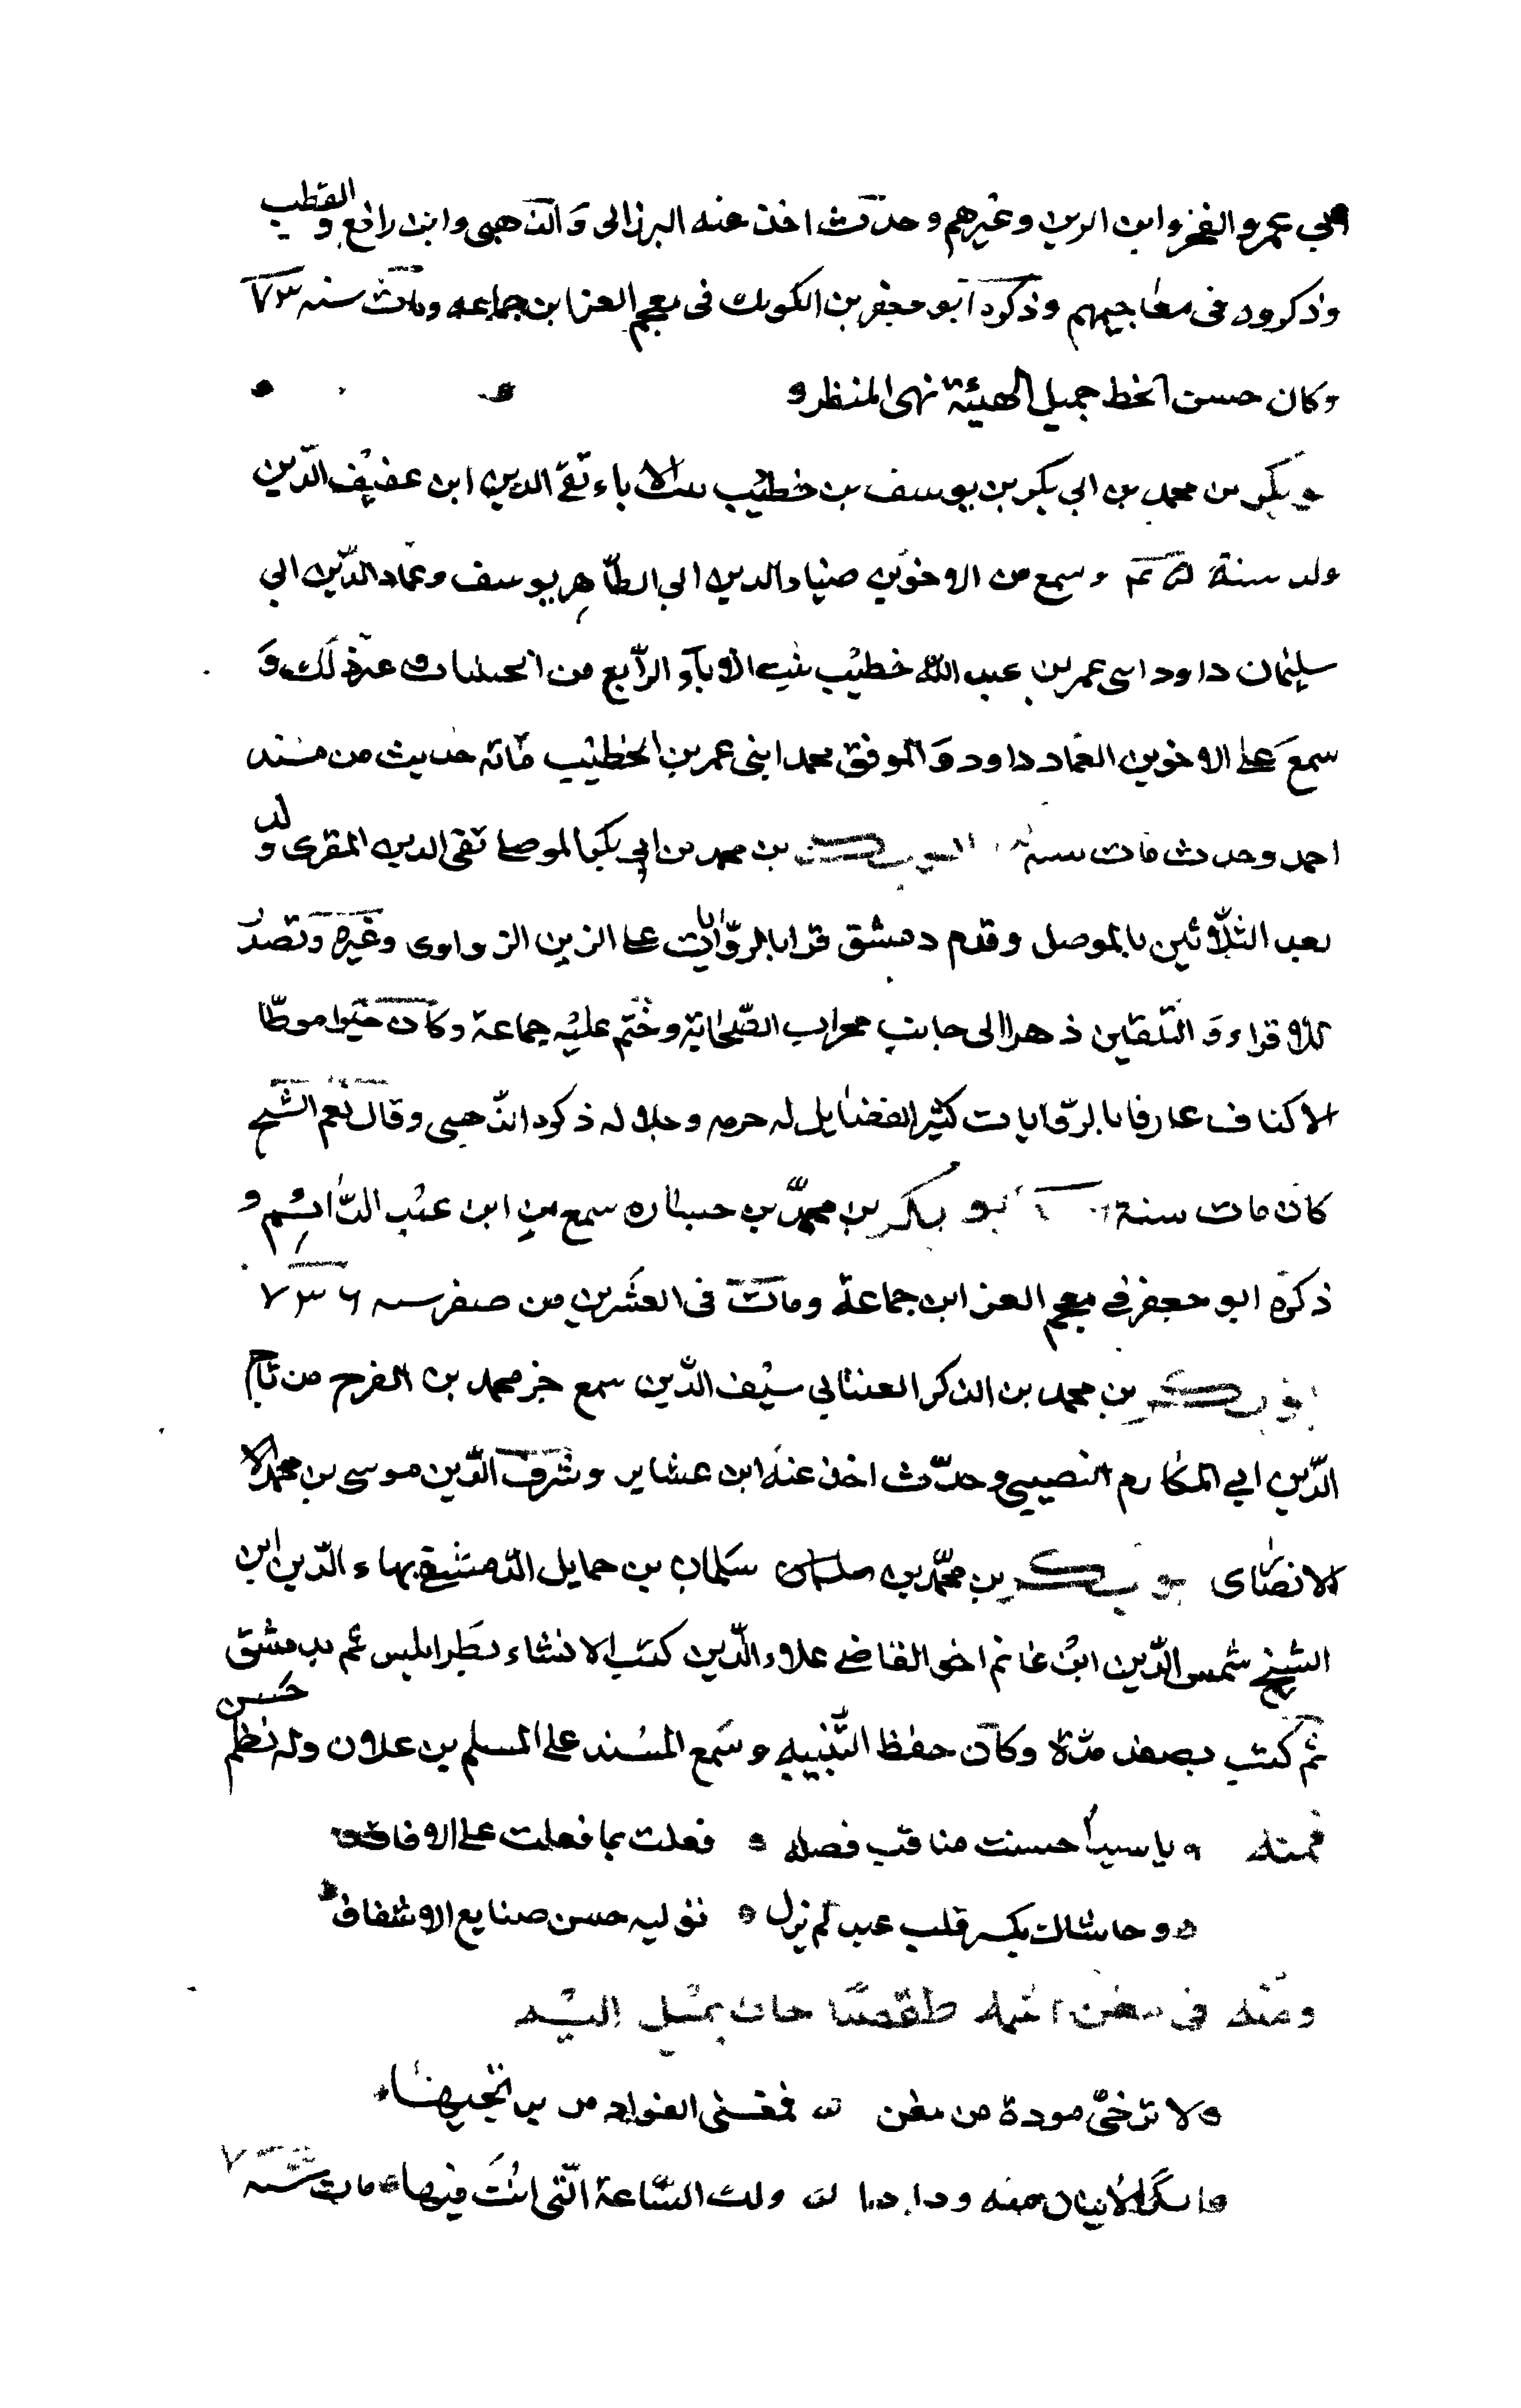 ابي عمر والفخر وابن الزين وغيرهم وحدث اخذ عنه البرزالى والذهبى وابن رافع والقطب
وذكروه فى معاجيمهم وذكره ابو جعفر بن الكويك فى معجم العز ابن جماعه ومات سنه ٧٣
وكان حسن الخط جميل الهيئة نهى المنظر و
بكر بن محمد بن ابي بكر بن يوسف بن خطيب بيت الاباء تقى الدين ابن عفيف الدين
ولد سنة وسمع من الاخوين ضياء الدين ابي الطاهر يوسف وعماد الدين ابي
سليمان داود ابنى عمر بن عبد الله خطيب بيت الاباء الرابع من وغير ذلك و
سمع على الاخوين العماد داود والموفق محمد ابنى عمر بن الخطيب مائة حديث من مسند
احمد وحدث مات سنة ابو بكر بن محمد بن ابي بكر الموصلى تقى الدين المقرى ولد
بعد الثلاثين بالموصل وقدم دمشق قرا بالروايات على الزين الزواوى وغيره وتصدر
للاقراء والتلقين دهرا الى جانب محراب الصحابة وختم عليه جماعة وكان خيرا موطا
الاكناف عارفا بالروايات كثير الفضايل له حرمه وجلاله ذكره الذهبى وقال نعم الشيخ
كان مات سنة ابو بكر بن محمد بن حباره سمع من ابن عبد الدائم و
ذكره ابو جعفر في معجم العز ابن جماعة ومات فى العشرين من صفر سنه ٧٣٦
ابو بكر بن محمد بن الذكر العنتابي سيف الدين سمع جز محمد بن الفرج من تاج
الدين ابي المكارم النصيبى وحدث اخذ عنه ابن عشاير وشرف الدين موسى بن محمد الا
الانصارى ابو بكر بن محمد بن سلمان بن حمايل الدمشقى بهاء الدين ابن
الشيخ شمس الدين ابن غانم اخى القاضى علاء الدين كتب الانشاء بطرابلس ثم بدمشق
ثم كتب بصفد مدة وكان حفظ التنبيه وسمع المسند على المسلم بن علان وله نظم حسن
فمنه يا سيدا حسنت مناقب فضله فعلت بما فعلت على الافاق
وحاشاك بكسر قلب عبد لم تزل توليه حسن صنايع الاشفاق
ومنه فى مغن طقصبا حان يميل اليه
لا ترجى مودة من مغن فمعنى الفواد من يرتجيها
منه ودا لك الساعة التى انت فيها مات سنه